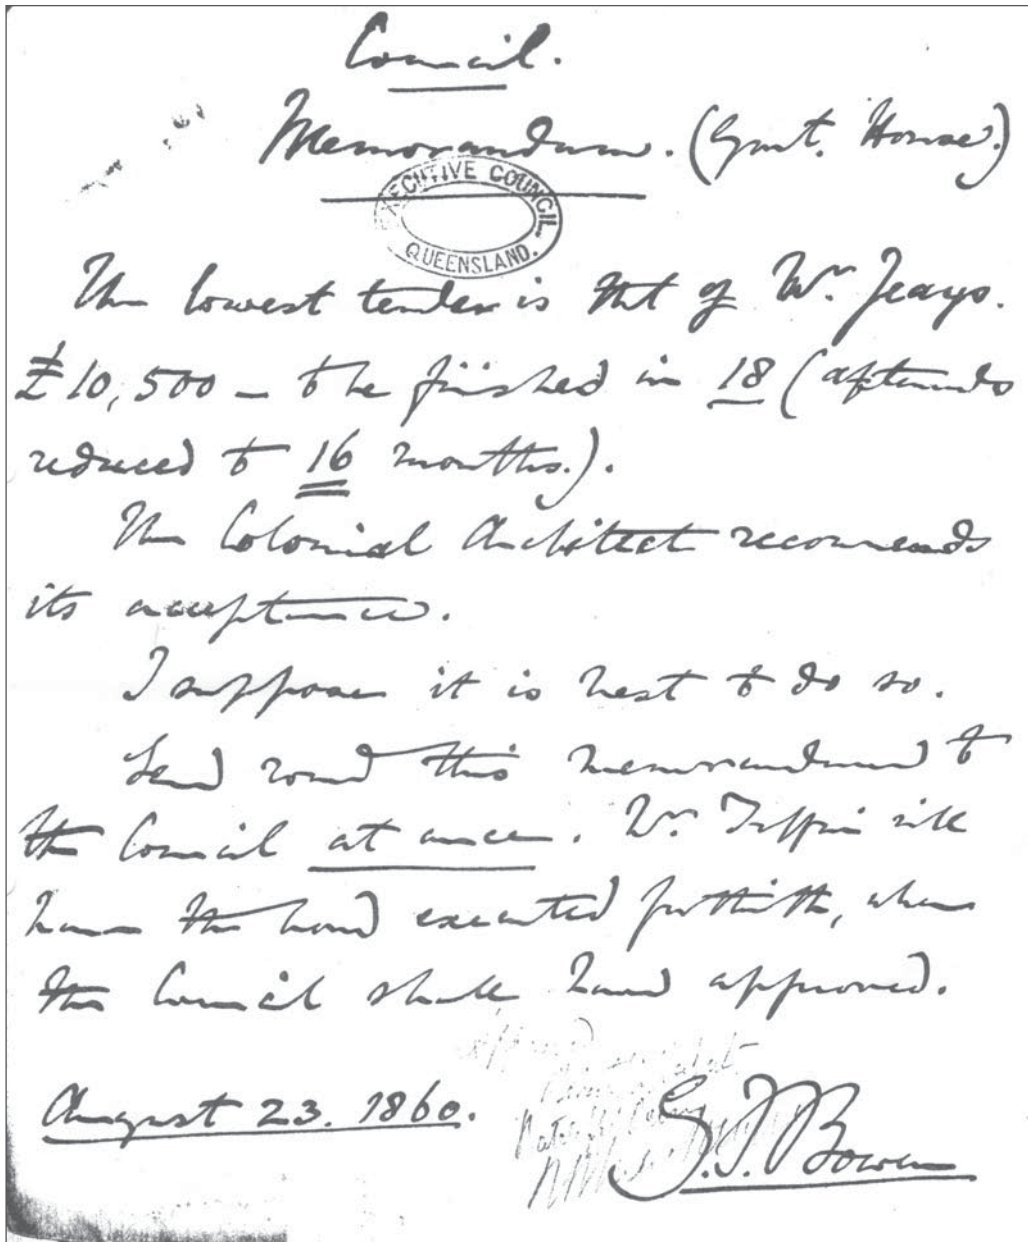 Council.
Memorandum. (Govt. House.)
EXECUTIVE COUNCIL
QUEENSLAND.
The lowest tender is that of Mr. Jeays.
£10,500 – to be finished in 18 (afterwards
reduced to 16 months.).
The Colonial Architect recommends
its acceptance.
I suppose it is best to do so.
Send round this memorandum to
the Council at once. Mr. Tiffin will
have the bond executed forthwith, when
the Council shall have approved.
Approved
August 23. 1860.
G.F. Bowen